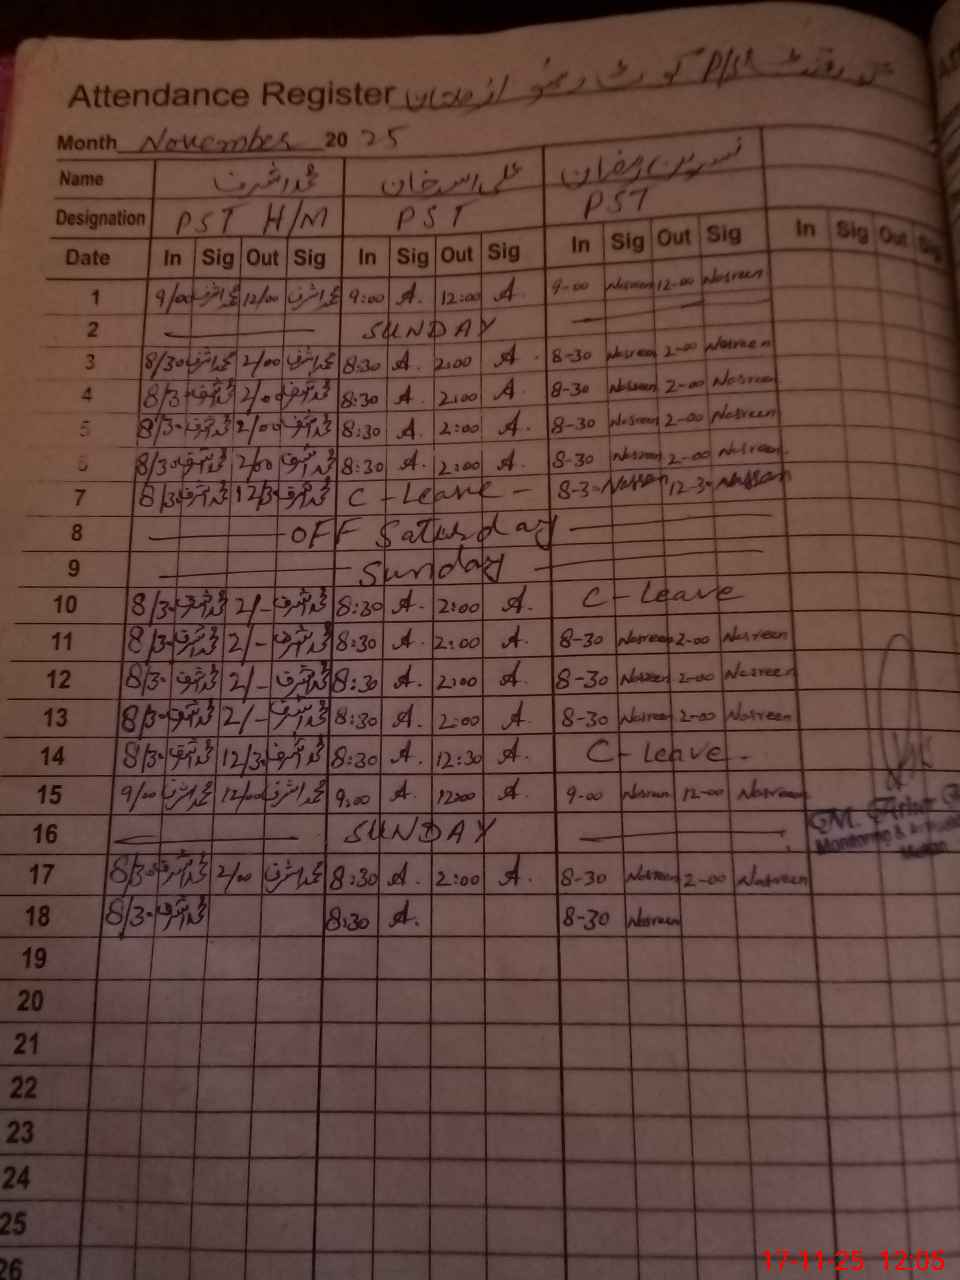 Attendance Register گورنمنٹ P/S کوٹ
Month November 2025
Name محمد اشرف علی اسد خان نسرین رمضان
Designation PST H/M PST PST
Date In Sig Out Sig In Sig Out Sig In Sig Out Sig In Sig Out Sig
1 9/00 محمد اشرف 12/00 محمد اشرف 9:00 A. 12:00 A. 9-00 Nasreen 12-00 Nasreen
2 SUNDAY
3 8/30 محمد اشرف 2/00 محمد اشرف 8:30 A. 2:00 A. 8-30 Nasreen 2-00 Nasreen
4 8/3- محمد اشرف 2/00 محمد اشرف 8:30 A. 2:00 A. 8-30 Nasreen 2-00 Nasreen
5 8/3- محمد اشرف 2/00 محمد اشرف 8:30 A. 2:00 A. 8-30 Nasreen 2-00 Nasreen
6 8/3- محمد اشرف 2/00 محمد اشرف 8:30 A. 2:00 A. 8-30 Nasreen 2-00 Nasreen
7 8/3- محمد اشرف 12/3- محمد اشرف C-Leave- 8-3- Nasreen 12-3- Nasreen
8 OFF Saturday
9 Sunday
10 8/3- محمد اشرف 2/- محمد اشرف 8:30 A. 2:00 A. C-Leave
11 8/3- محمد اشرف 2/- محمد اشرف 8:30 A. 2:00 A. 8-30 Nasreen 2-00 Nasreen
12 8/3- محمد اشرف 2/- محمد اشرف 8:30 A. 2:00 A. 8-30 Nasreen 2-00 Nasreen
13 8/3- محمد اشرف 2/- محمد اشرف 8:30 A. 2:00 A. 8-30 Nasreen 2-00 Nasreen
14 8/3- محمد اشرف 12/3- محمد اشرف 8:30 A. 12:30 A. C-Leave-
15 9/00 محمد اشرف 12/00 محمد اشرف 9:00 A. 12:00 A. 9-00 Nasreen 12-00 Nasreen
16 SUNDAY
M.
Monitoring &
17 8/3- محمد اشرف 2/00 محمد اشرف 8:30 A. 2:00 A. 8-30 Nasreen 2-00 Nasreen
18 8/3- محمد اشرف 8:30 A. 8-30 Nasreen
19
20
21
22
23
24
25
26
17-11-25 12:05